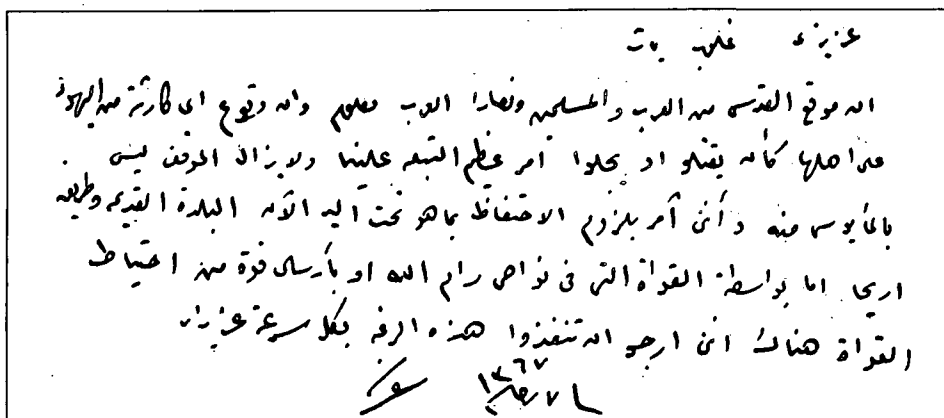 عزيزي غلوب باشا
ان موقع القدس من العرب والمسلمين ونصارا العرب معلوم وان وقوع اي كارثة من اليهود
على اهلها كأن يقتلو او يجلوا أمر عظيم التبعه علينا ولا يزال الموقف ليس
بالمأيوس منه وأنني آمر بلزوم الاحتفاظ بما هو تحت اليد الآن البلدة القديمه وطريق
اريحا اما بواسطة القواة التي في نواحي رام الله او بأرسال قوة من احتياط
القواة هناك انني ارجو ان تنفذوا هذه الرغبه بكل سرعة عزيزي
١٣٦٧